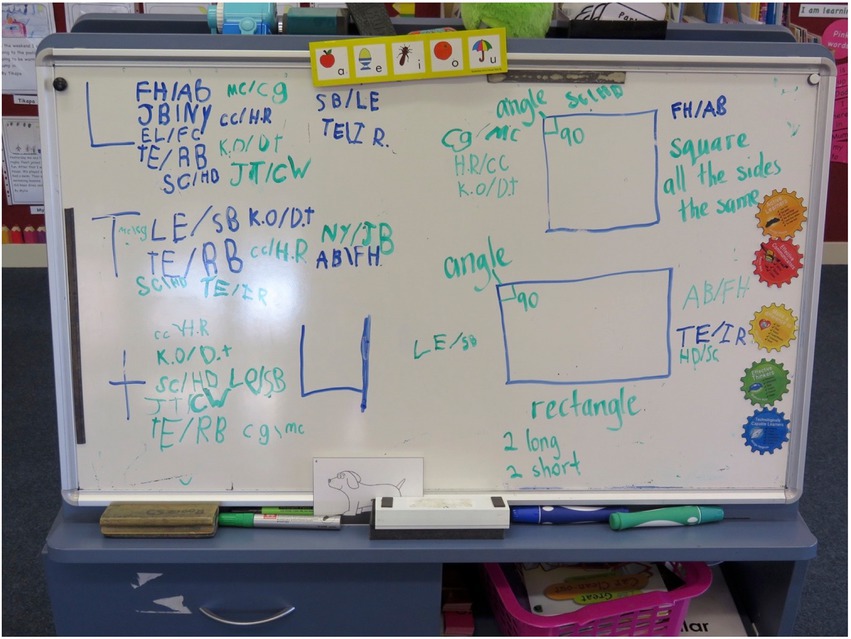 I am learning
Pink
words
a e i o u
FH/AB mc/cg
JB/NY cc/H.R
EL/FC K.O/D.t
TE/RB JT/CW
SC/HD
SB/LE
TE/I R.
mc/cg LE/SB K.O/D.t NY/JB
TE/RB cc/H.R AB\FH
SC/HD TE/IR
cc\H.R
K.O/D.t
SC/HD LE/SB
JT/CW
TE/RB cg\mc
angle SC/HD
90
cg/mc
H.R/CC
K.O/D.t
FH/AB
square
all the sides
the same
angle
90
LE/SB
AB/FH
TE/IR
HD/SC
rectangle.
2 long
2 short
Great